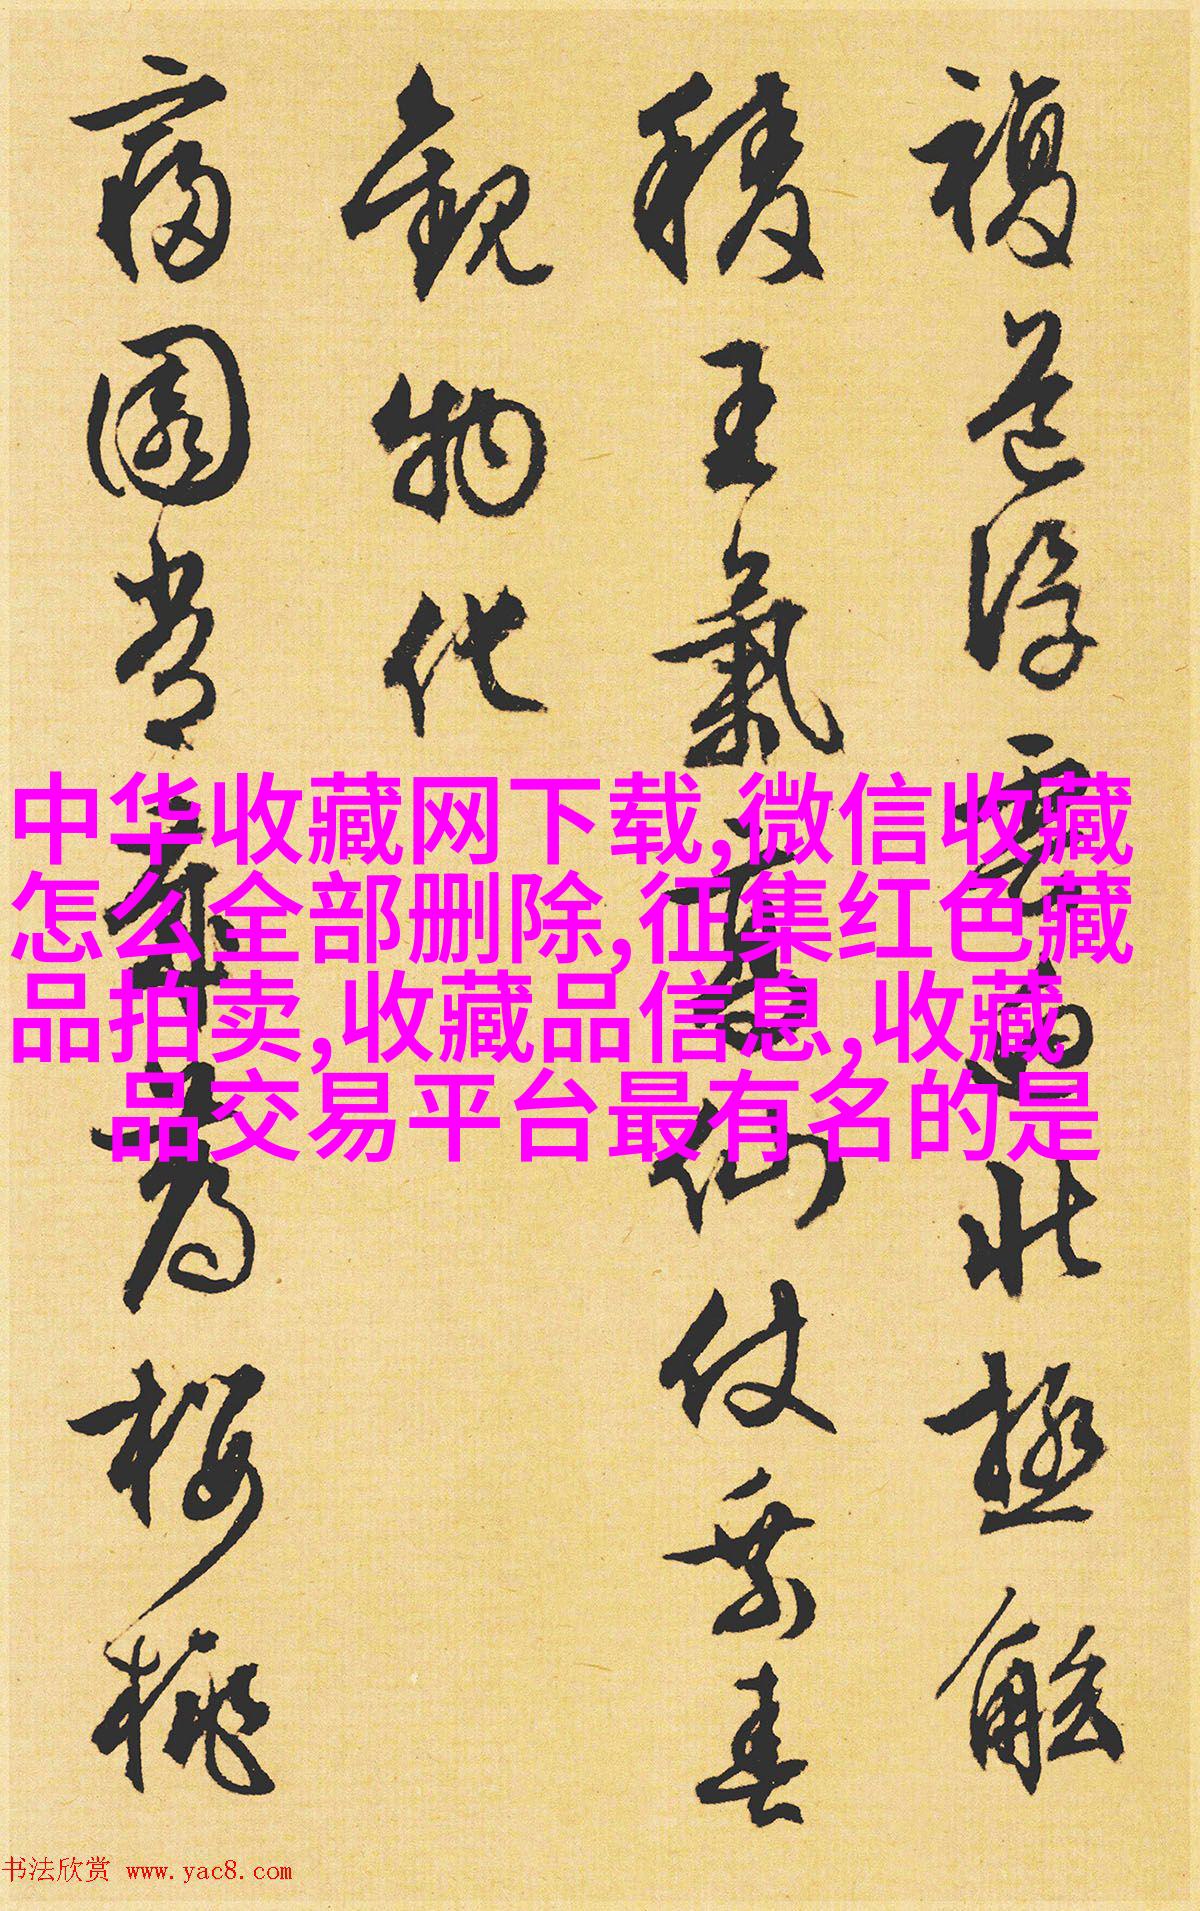 複道浮雲北極觚
稜王氣高仙仗乘春
觀物化
寢園嘗薦為櫻桃
中华收藏网下载,微信收藏
怎么全部删除,征集红色藏
品拍卖,收藏品信息,收藏
品交易平台最有名的是
书法欣赏 www.yac8.com